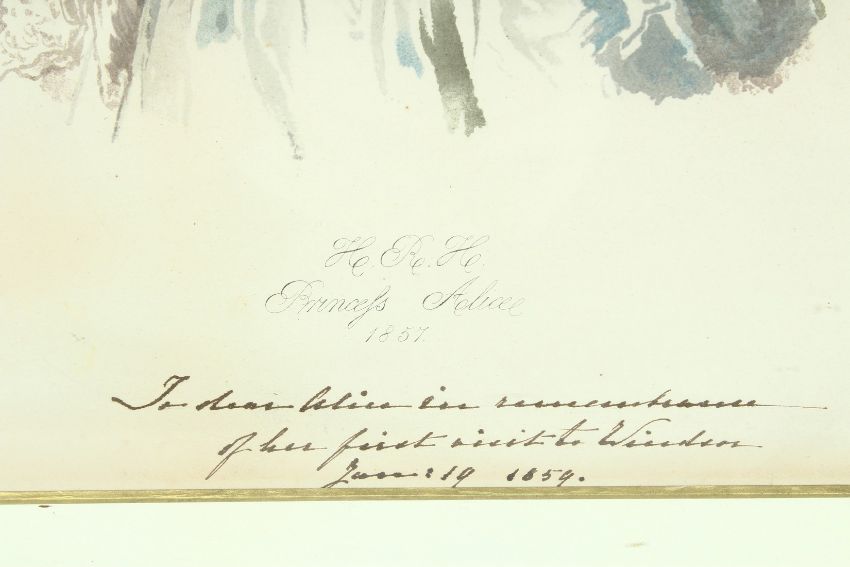 H. R. H.
Princess Alice
1857.
To dear Alice in remembrance
of her first visit to Windsor
Jan: 19 1859.